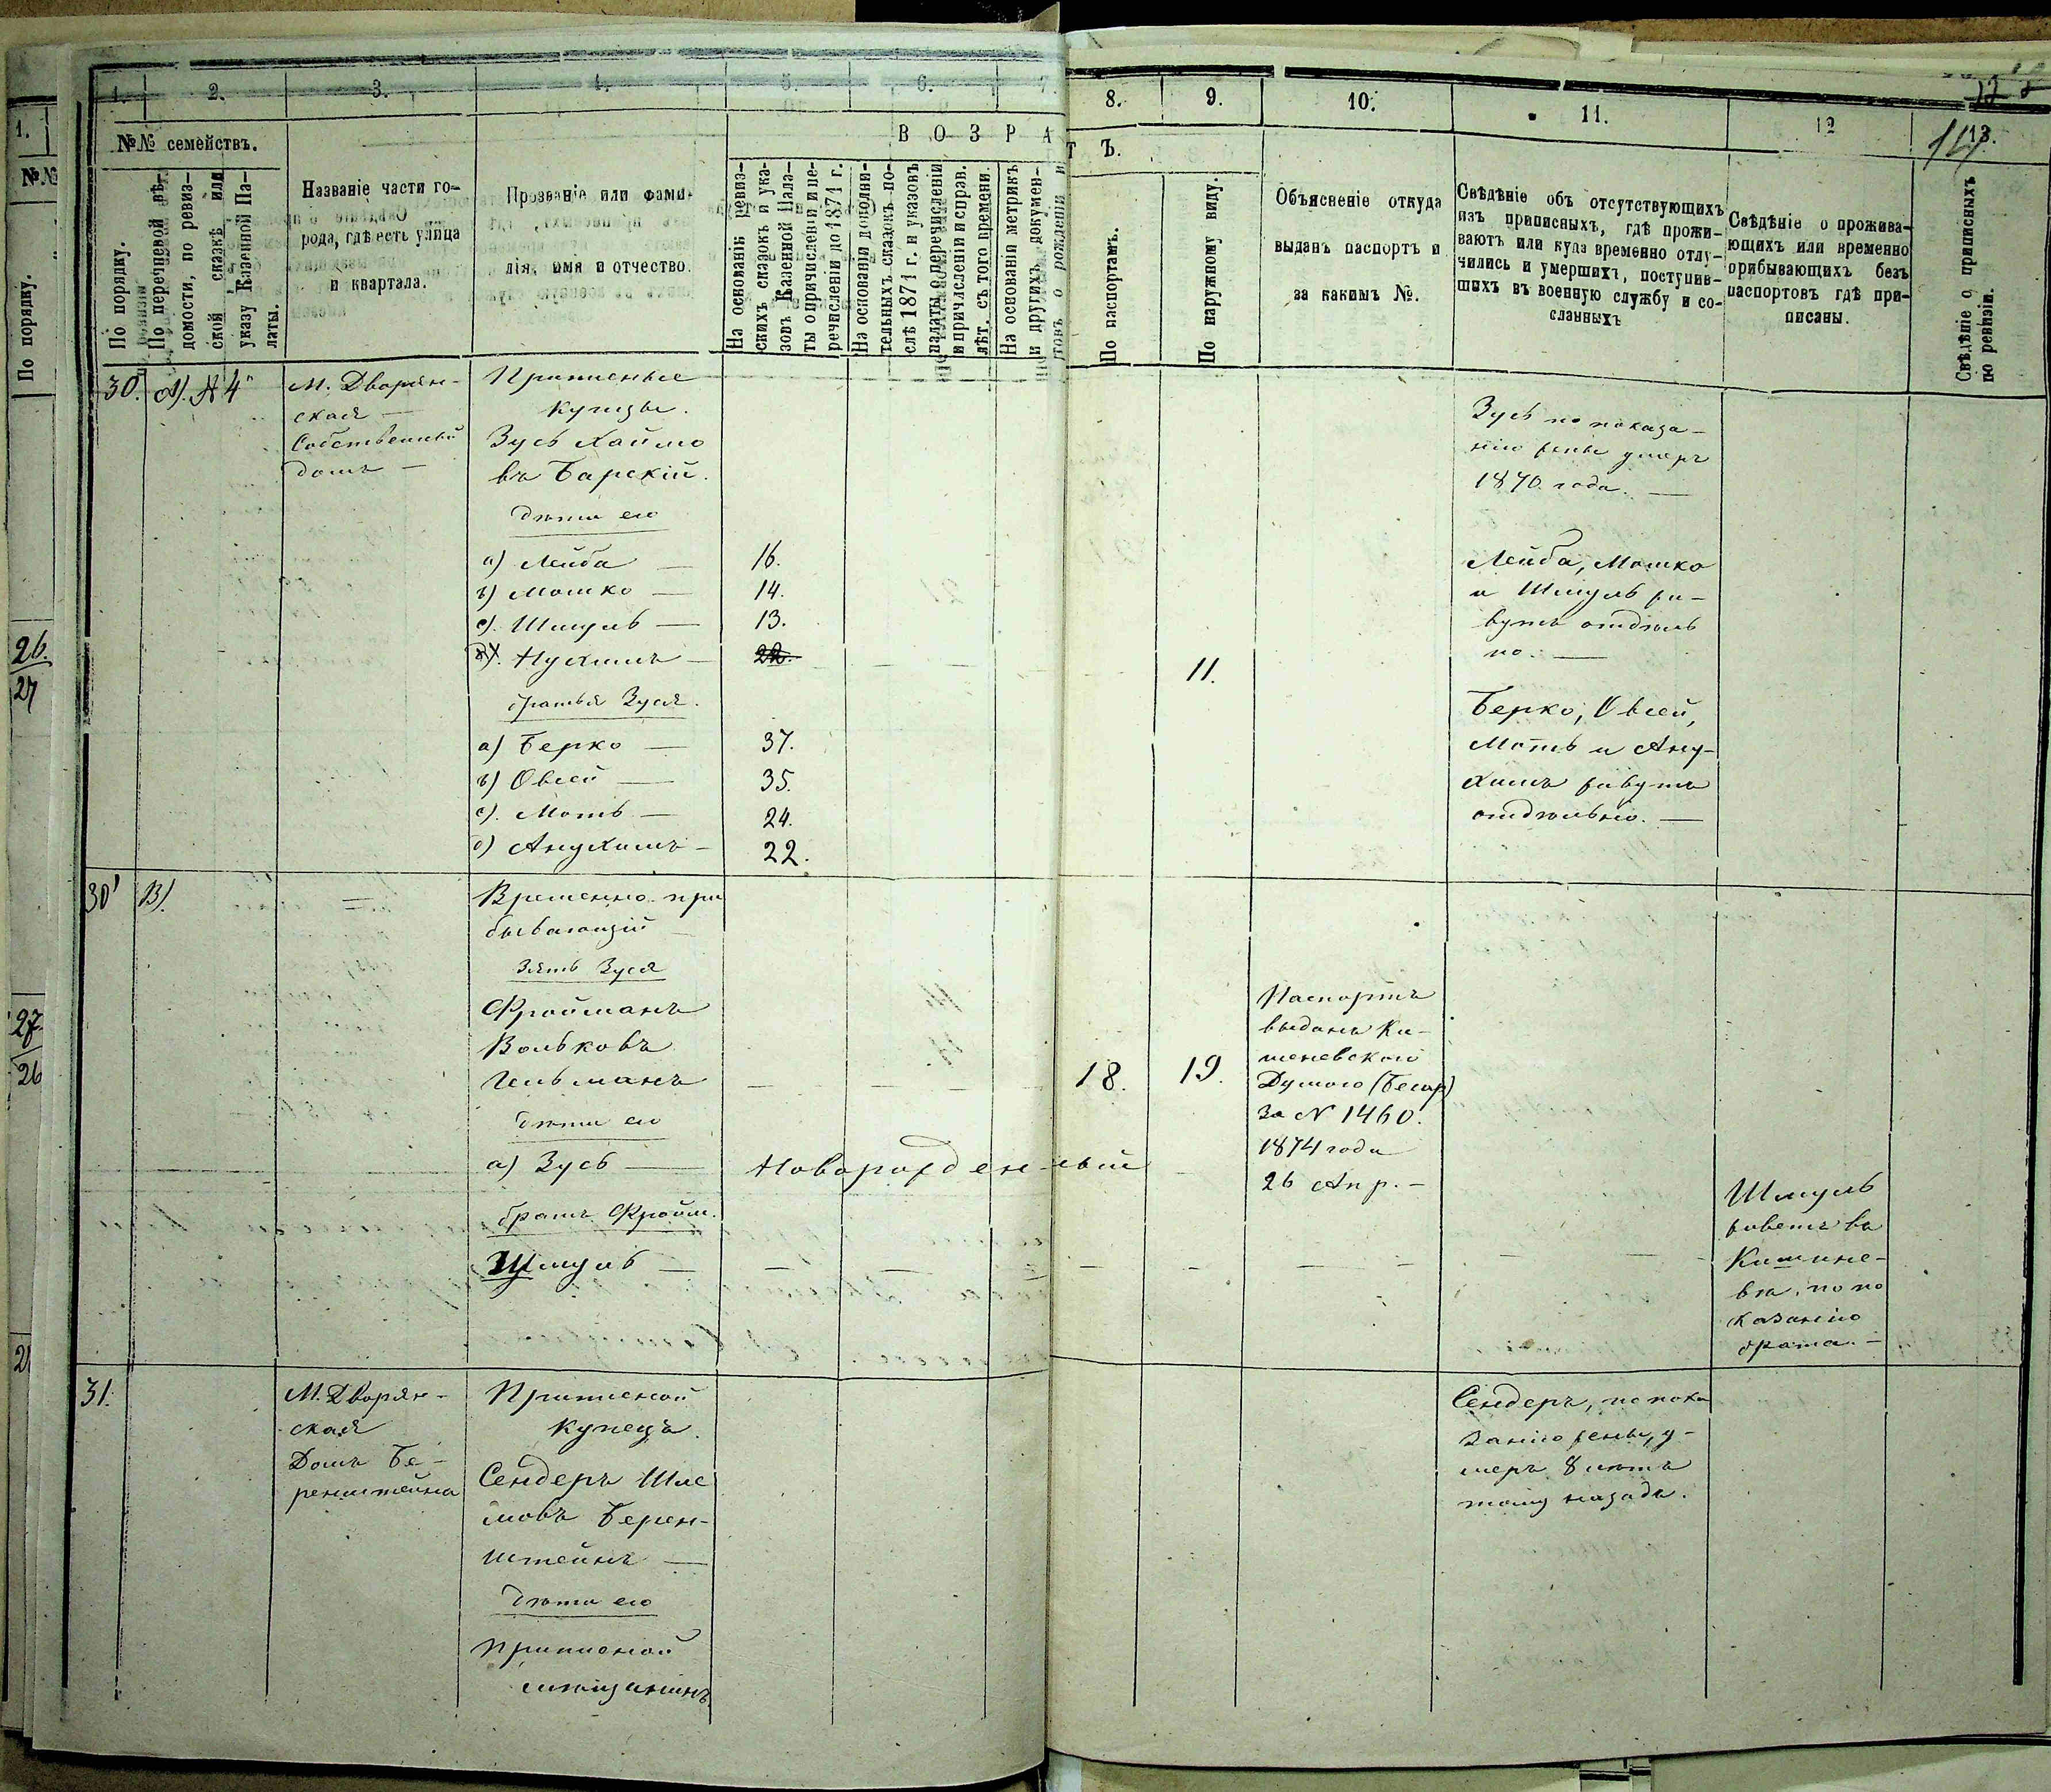 1. 2. 3. 4. 5. 6. 7. 8. 9. 10. 11. 12 13.
1.
№№
По порядку.
26.
27
27.
26
№№ семействъ.
По порядку.
По перечневой вѣ-
домости, по ревиз-
ской сказкѣ или
указу Казенной Па-
латы.
Названіе части го-
рода, гдѣ есть улица
и квартала.
Прозваніе или фами-
лія, имя и отчество.
ВОЗРА
ТЪ.
На основаніи ревиз-
скихъ сказокъ и ука-
зовъ Казенной Пала-
ты о причисленіи и пе-
речисленіи до 1871 г.
На основаніи дополни-
тельныхъ сказокъ по-
слѣ 1871 г. и указовъ
палаты о перечисленіи
и причисленіи и справ.
лѣт. съ того времени.
На основаніи метрикъ
и другихъ докумен-
товъ о рожденіи и
По паспортамъ.
По наружному виду.
Объясненіе откуда
выданъ паспортъ и
за какимъ №.
Свѣдѣніе объ отсутствующихъ
изъ приписныхъ, гдѣ прожи-
ваютъ или куда временно отлу-
чились и умершихъ, поступив-
шихъ въ военную службу и со-
сланныхъ
Свѣдѣніе о прожива-
ющихъ или временно
прибывающихъ безъ
паспортовъ гдѣ при-
писаны.
Свѣдѣніе о приписныхъ
по ревизіи.
30. А). № 4
М. Дворян-
ская —
Собственный
домъ —
Приписные
купцы.
Зусь Хаимо
въ Барскій.
дѣти его
а) Лейба — 16.
в) Мошко — 14.
с). Шмуль — 13.
д). Нухимъ — 22. 11.
братья Зуся.
а) Берко — 37.
в) Овсей — 35.
с). Моть — 24.
д) Анухимъ — 22.
Зусь по показа-
нію жены умеръ
1870 года. —
Лейба, Мошко
и Шмуль жи-
вутъ отдѣль
но. —
Берко, Овсей,
Моть и Ану-
химъ живутъ
отдѣльно. —
30' В).
=
Временно при
бывающій
Зять Зуся
Фройманъ
Вольковъ
Гельманъ — — — 18. 19.
дѣти его
а) Зусь — Новорожденный
братъ Фройм.
Шмуль —
Паспортъ
выданъ Ки-
шеневскою
Думою (Бесар)
за № 1460.
1874 года
26 Апр. —
Шмуль
живетъ въ
Кишине-
вѣ, по по
казанію
брата. —
31.
М. Дворян-
ская
Домъ Бе-
ренштейна
Приписной
купецъ.
Сендеръ Шле
мовъ Берен-
штейнъ —
дѣти его
приписной
мѣщанинъ
Сендеръ, по пока
занію жены, у-
меръ 8 лѣтъ
тому назадъ.